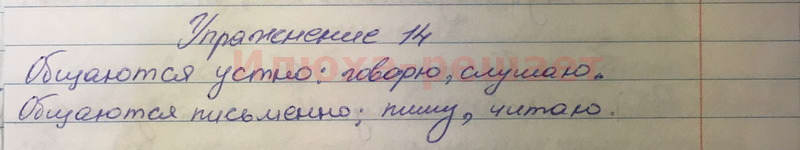 Упражнение 14
Общаются устно: говорю, слушаю.
Общаются письменно: пишу, читаю.